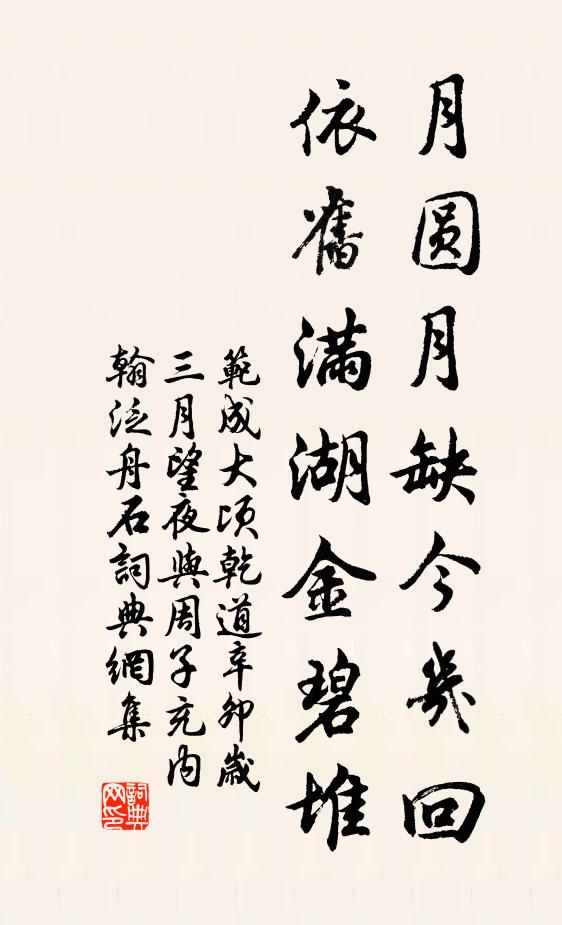 月圆月缺今幾回
依舊满湖金碧堆
範成大頃乾道辛卯歲
三月望夜與周子充内
翰泛舟石詞典網集
詞典网印